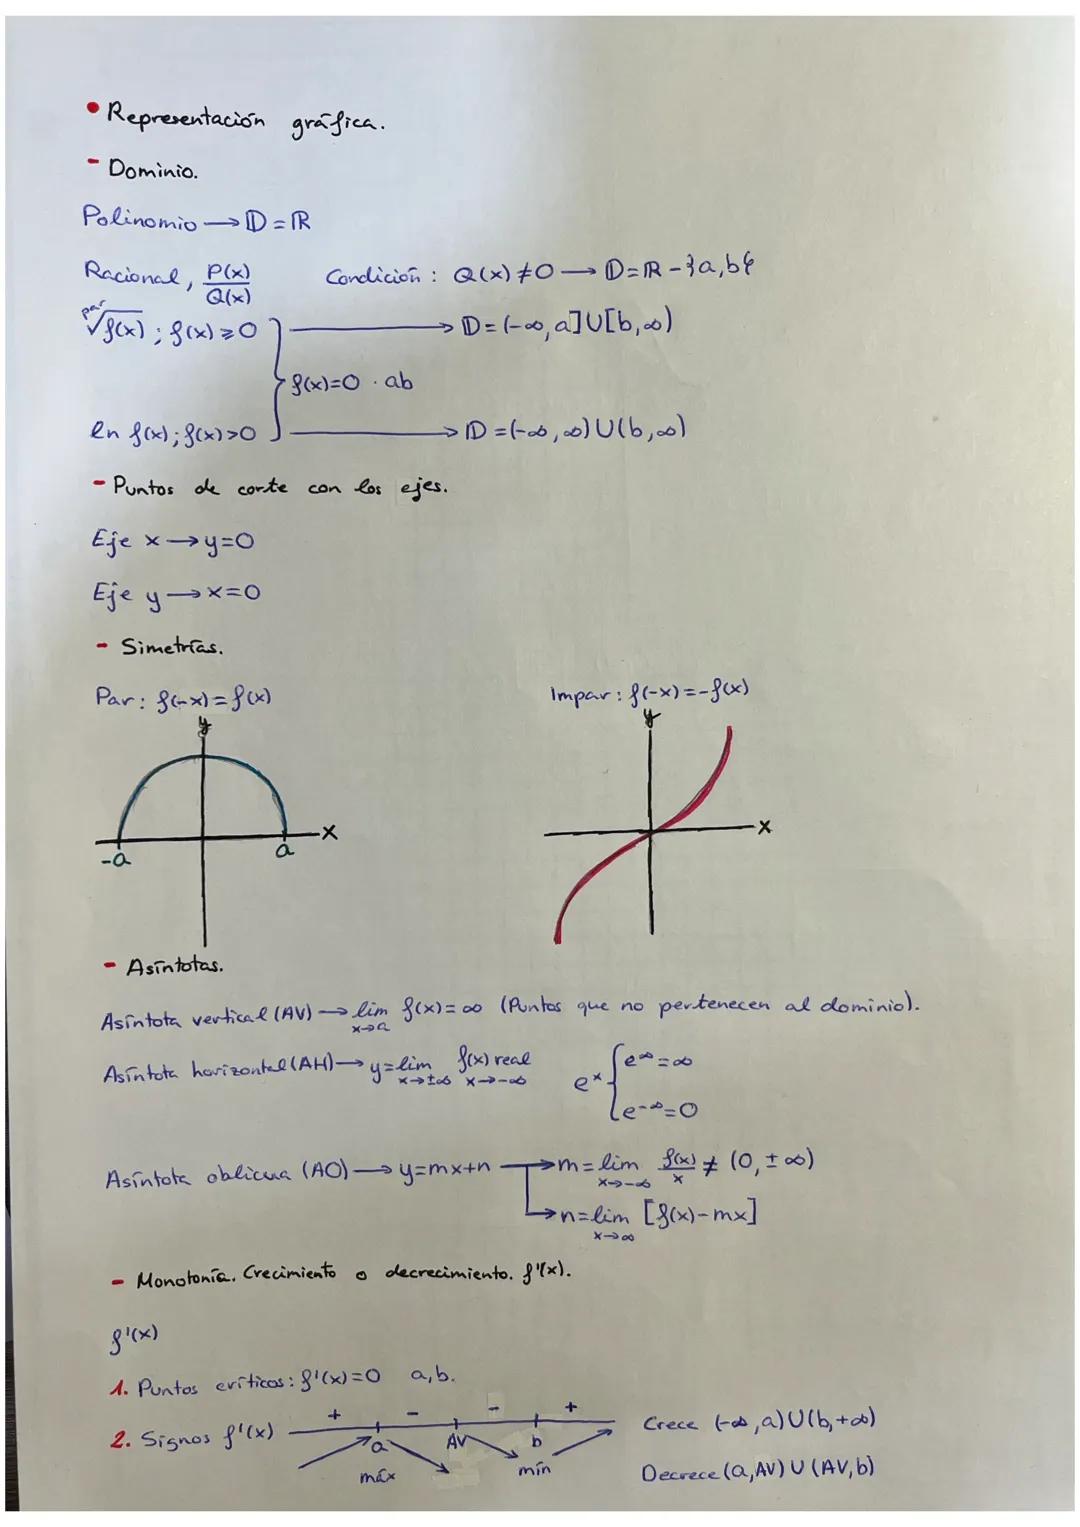 • Representación gráfica.
- Dominio.
Polinomio → D = ℝ
Racional, P(x)/Q(x) Condición: Q(x) ≠ 0 → D = ℝ - {a, b}
par√f(x) ; f(x) ≥ 0 → D = (-∞, a] U [b, ∞)
f(x)=0 · ab
ln f(x); f(x)>0 → D = (-∞, ∞) U (b, ∞)
- Puntos de corte con los ejes.
Eje x → y=0
Eje y → x=0
- Simetrías.
Par: f(-x) = f(x) Impar: f(-x) = -f(x)
y y
x x
-a a
- Asíntotas.
Asíntota vertical (AV) → lim x→a f(x) = ∞ (Puntos que no pertenecen al dominio).
Asíntota horizontal (AH) → y = lim x→±∞ f(x) real x→-∞ eˣ { e^∞ = ∞
e^-∞ = 0
Asíntota oblicua (AO) → y=mx+n → m = lim x→-∞ f(x)/x ≠ (0, ±∞)
→ n = lim x→∞ [f(x) - mx]
- Monotonía. Crecimiento o decrecimiento. f'(x).
f'(x)
1. Puntos críticos: f'(x)=0 a, b.
2. Signos f'(x) + - - + Crece (-∞, a) U (b, +∞)
a AV b
máx mín Decrece (a, AV) U (AV, b)